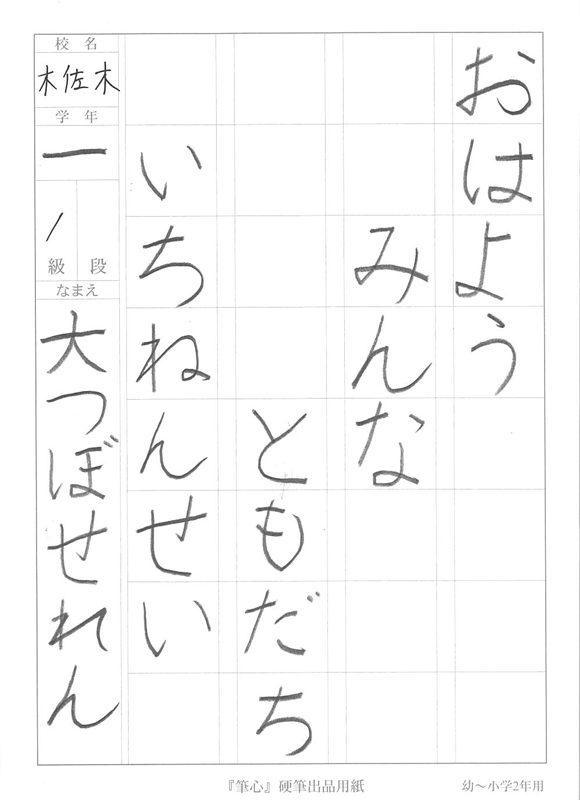 おはよう
みんな
ともだち
いちねんせい
校名
木佐木
学年
一
級 段
なまえ
大つぼせれん
『筆心』硬筆出品用紙
幼〜小学2年用